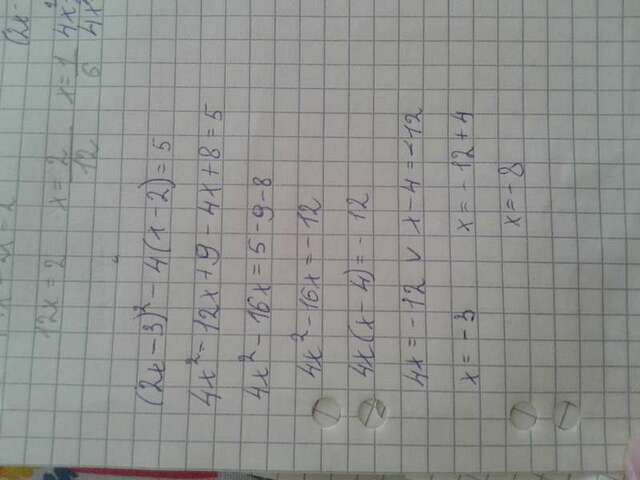 12x = 2 x = 2/12 x = 1/6 4x²
4x
(2x - 3)² - 4(x - 2) = 5
4x² - 12x + 9 - 4x + 8 = 5
4x² - 16x = 5 - 9 - 8
4x² - 16x = - 12
4x(x - 4) = - 12
4x = - 12 v x - 4 = - 12
x = - 3 x = - 12 + 4
x = - 8